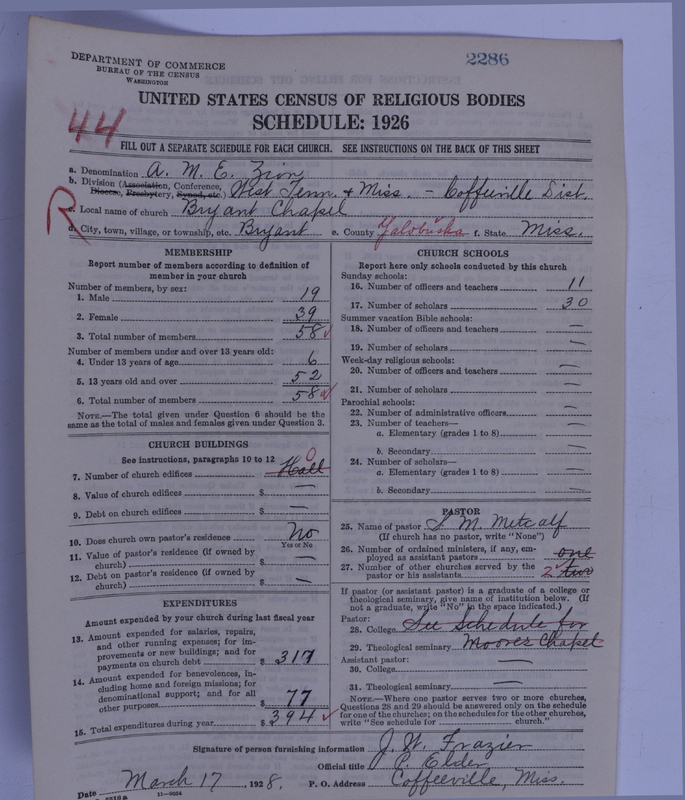 DEPARTMENT OF COMMERCE
BUREAU OF THE CENSUS
WASHINGTON
2286
UNITED STATES CENSUS OF RELIGIOUS BODIES
SCHEDULE: 1926
44
FILL OUT A SEPARATE SCHEDULE FOR EACH CHURCH. SEE INSTRUCTIONS ON THE BACK OF THIS SHEET
a. Denomination A. M. E. Zion
b. Division (Association, Conference, Diocese, Presbytery, Synod, etc.) West Tenn. + Miss. - Coffeeville Dist.
R
c. Local name of church Bryant Chapel
d. City, town, village, or township, etc. Bryant e. County Yalobusha f. State Miss.
MEMBERSHIP
Report number of members according to definition of
member in your church
Number of members, by sex:
1. Male 19
2. Female 39
3. Total number of members 58
Number of members under and over 13 years old:
4. Under 13 years of age 6
5. 13 years old and over 52
6. Total number of members 58
NOTE.—The total given under Question 6 should be the
same as the total of males and females given under Question 3.
CHURCH BUILDINGS
See instructions, paragraphs 10 to 12 0
7. Number of church edifices Hall
8. Value of church edifices $ —
9. Debt on church edifices $ —
10. Does church own pastor's residence No
Yes or No
11. Value of pastor's residence (if owned by
church) $ —
12. Debt on pastor's residence (if owned by
church) $ —
EXPENDITURES
Amount expended by your church during last fiscal year
13. Amount expended for salaries, repairs,
and other running expenses; for im-
provements or new buildings; and for
payments on church debt $ 317
14. Amount expended for benevolences, in-
cluding home and foreign missions; for
denominational support; and for all
other purposes 77
15. Total expenditures during year $ 394
CHURCH SCHOOLS
Report here only schools conducted by this church
Sunday schools:
16. Number of officers and teachers 11
17. Number of scholars 30
Summer vacation Bible schools:
18. Number of officers and teachers —
19. Number of scholars —
Week-day religious schools:
20. Number of officers and teachers —
21. Number of scholars —
Parochial schools:
22. Number of administrative officers —
23. Number of teachers—
a. Elementary (grades 1 to 8) —
b. Secondary —
24. Number of scholars—
a. Elementary (grades 1 to 8) —
b. Secondary —
PASTOR
25. Name of pastor S. M. Metcalf
(If church has no pastor, write "None")
26. Number of ordained ministers, if any, em-
ployed as assistant pastors one
27. Number of other churches served by the
pastor or his assistants 2 two
If pastor (or assistant pastor) is a graduate of a college or
theological seminary, give name of institution below. (If
not a graduate, write "No" in the space indicated.)
Pastor:
28. College See Schedule for
29. Theological seminary Moores Chapel
Assistant pastor:
30. College —
31. Theological seminary —
NOTE.—Where one pastor serves two or more churches,
Questions 28 and 29 should be answered only on the schedule
for one of the churches; on the schedules for the other churches,
write "See schedule for church."
Signature of person furnishing information J. W. Frazier
Official title P. Elder
Date March 17, 1928. P. O. Address Coffeeville, Miss.
11—9034